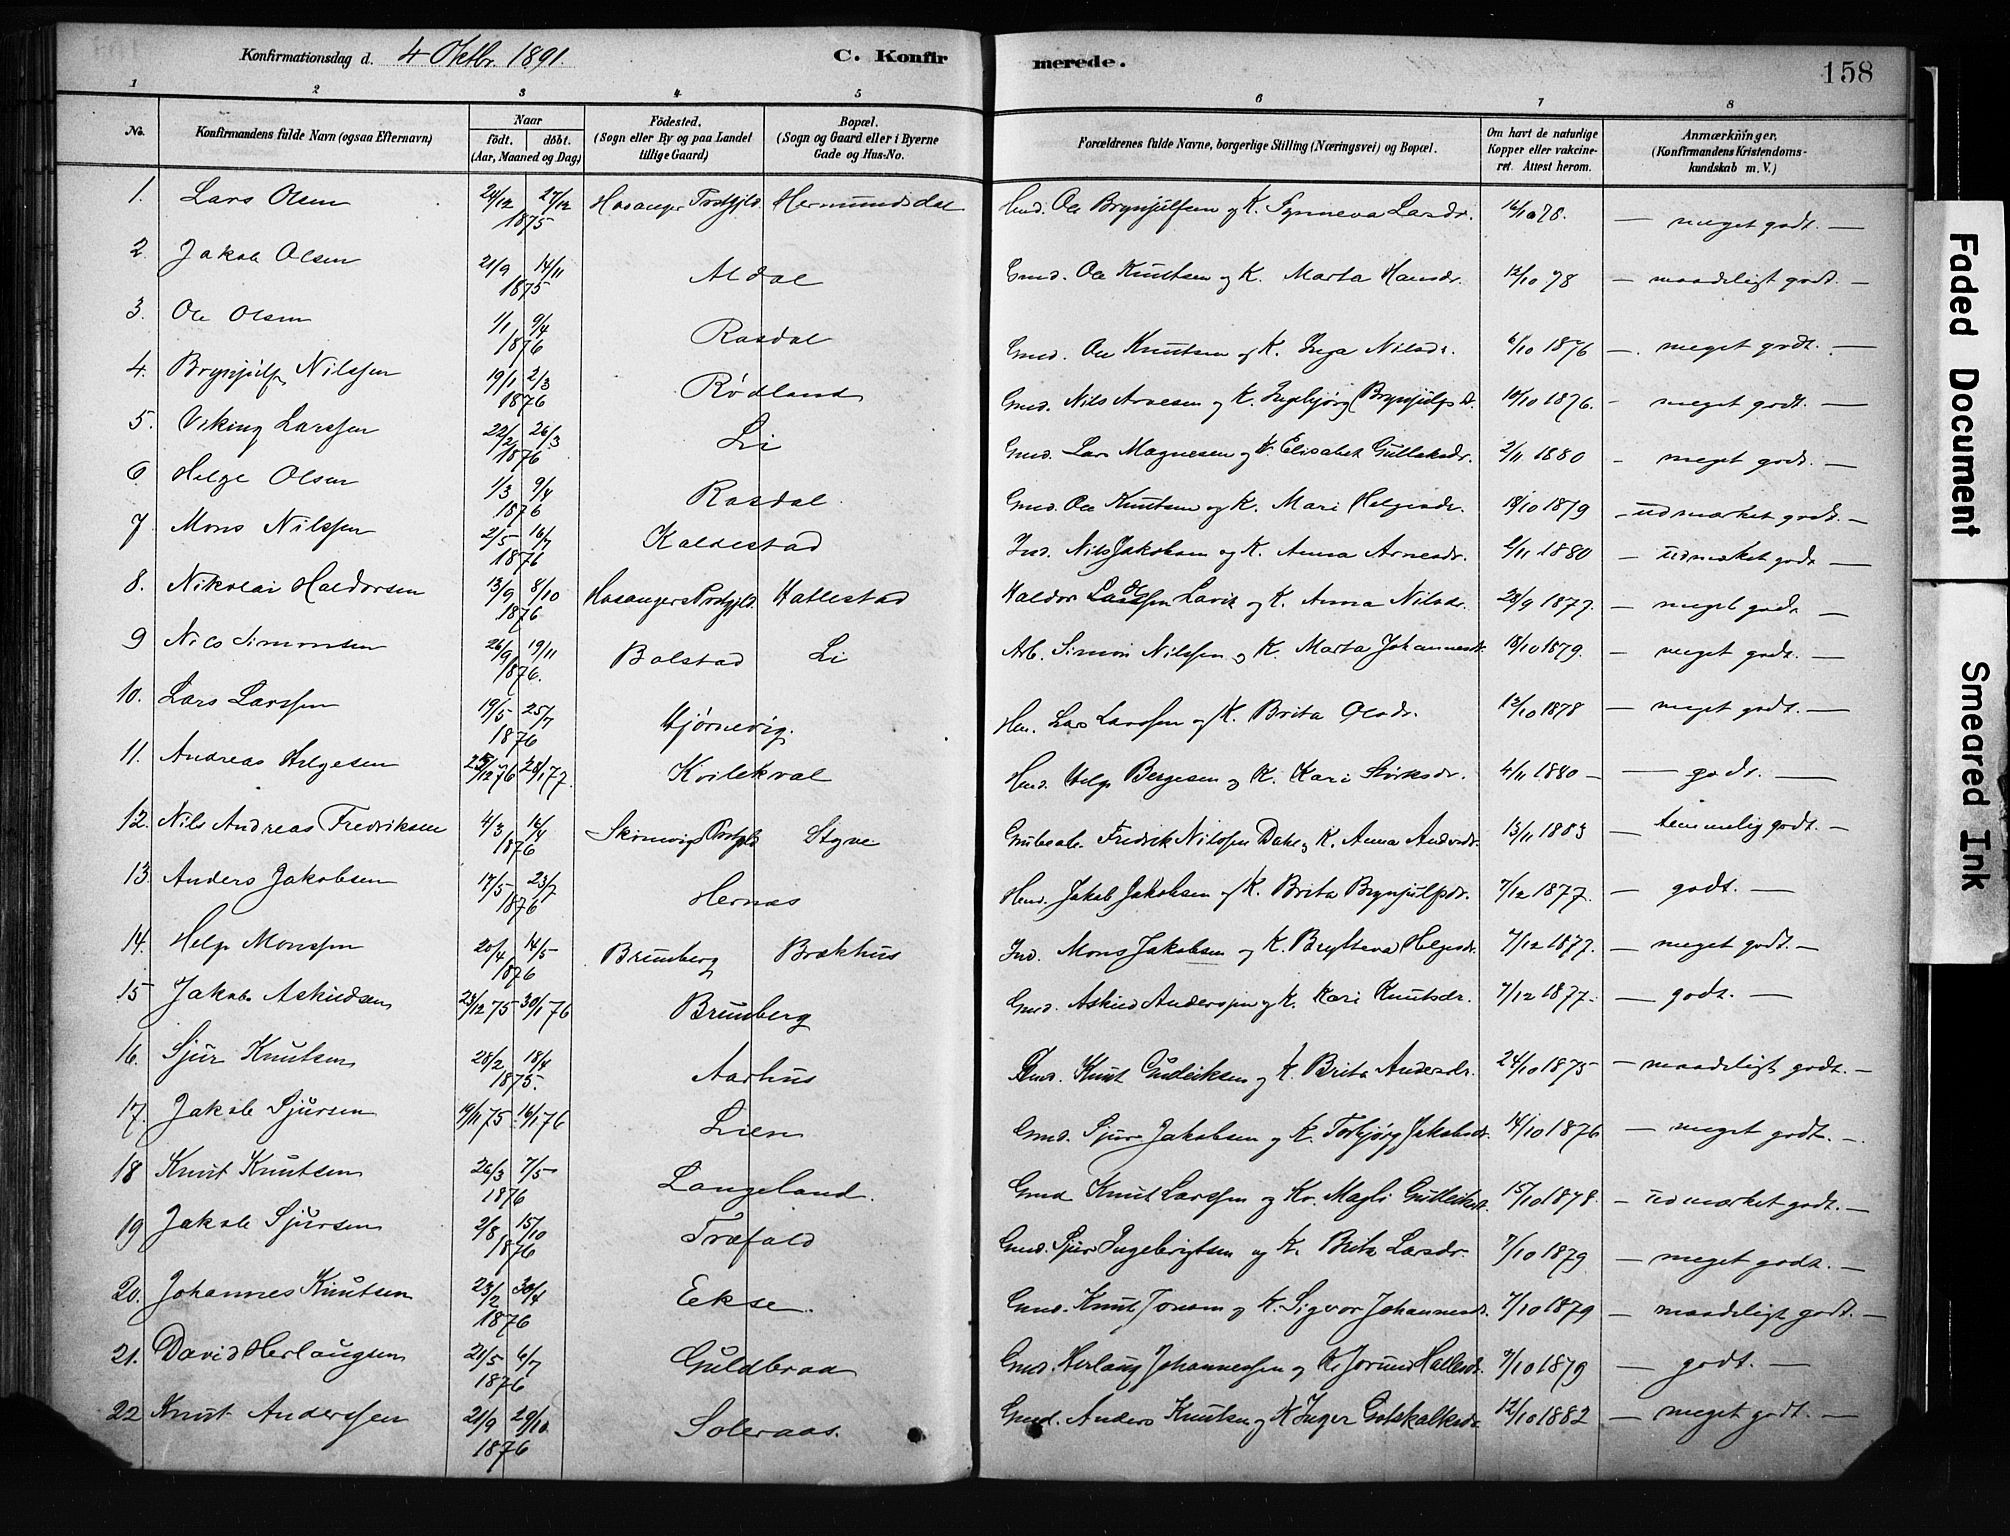 Konfirmationsdag d. 4 Oktbr. 1891. C. Konfir merede. 158
1 2 3 4 5 6 7 8
No. Konfirmandens fulde Navn (ogsaa Efternavn) Naar Födt. döbt. (Aar, Maaned og Dag) Födested. (Sogn eller By og paa Landet tillige Gaard) Bopæl. (Sogn og Gaard eller i Byerne Gade og Hus-No. Forældrenes fulde Navne, borgerlige Stilling (Næringsvei) og Bopæl. Om havt de naturlige Kopper eller vakcineret. Attest herom. Anmærkninger, (Konfirmandens Kristendomskundskab m. V.)
1. Lars Olsen 24/12 27/12 1875 Hosanger Prstgjld. Hermundsdal Gmd. Ole Brynjulfsen og K. Synneva Larsdr. 16/10 78. — meget godt. —
2 Jakob Olsen 21/9 14/11 1875 Aldal Gmd. Ole Knutsen og K. Marta Hansdr. 12/10 78 — maadeligt godt. —
3. Ole Olsen 1/1 9/4 1876 Rasdal Gmd. Ole Knutsen og K. Inga Nilsdr. 6/10 1876 — meget godt. —
4. Brynjulf Nilssen 19/1 2/3 1876 Rødland Gmd. Nils Arnesen og K. Ingebjørg Brynjulfsd. 10/10 1876. - meget godt. —
5. Viking Larssen 22/2 26/3 1876 Li Gmd. Lars Magnesen og K. Elisabet Gulleksdr. 2/11 1880 - meget godt. —
6 Helge Olsen 1/3 9/4 1876 Rasdal Gmd. Ole Knutsen og K. Mari Helgesdr. 18/10 1879 — udmærket godt. —
7 Mons Nilssen 2/5 16/7 1876 Kaldestad Ind. Nils Jakobsen og K. Anna Arnesdr. 2/11 1880 — udmærket godt —
8. Nikolai Haldorsen 13/9 8/10 1876 Hosangers Prstgjld. Hallestad Haldor Lavik og K. Anna Nilsdr. 28/9 1877. — meget godt —
9 Nils Simonsen 26/9 19/11 1876. Bolstad Li Arb. Simon Nilssen og K. Marta Johannesdr. 18/10 1879. — meget godt. —
10. Lars Larssen 19/5 25/7 1876 Hjørnevig. Hm. Lars Larssen og K. Brita Olsdr. 12/10 1878 — meget godt. —
11. Andreas Helgesen 25/12 76 28/1 77. Kvilekval Hmd. Helge Bergesen og K. Kari Størksdr. 4/11 1880 — — godt. —
12. Nils Andreas Fredriksen 4/3 16/4 1876 Styve Fredrik Nilssen Dahl og K. Anna Andersdr. 13/11 1883 — temmelig godt. —
13. Anders Jakobsen 17/5 23/7 1876 Hernæs Hmd. Jakob Jakobsen og K. Brita Brynjulfsdr. 7/12 1877. — godt. —
14. Helge Monssen 20/4 14/5 1876 Brunberg Brækhus Ind. Mons Jakobsen og K. Helgesdr. 7/12 1877. — meget godt. —
15 Jakob Askildsen 23/12 75 30/1 76 Brunberg Gmd. Askild Anderssen og K. Kari Knutsdr. 7/12 1877. — godt. —
16. Sjur Knutsen 28/2 18/4 1875. Aarhus Gmd. Knut Gulleiksen og K. Brita Andersdr. 24/10 1875 — maadeligt godt. —
17. Jakob Sjursen 19/11 75. 16/1 76 Lien Gmd. Sjur Jakobsen og K. Torbjørg Jakobsdr. 14/10 1876 — meget godt. —
18 Knut Knutsen 26/3 7/5 1876 Langeland. Gmd Knut Larssen og Kr. Magli Gulleiksdr. 15/10 1878. — udmærket godt. —
19 Jakob Sjursen 2/8 15/10 1876 Træfald Gmd. Sjur Ingebrigtsen og K. Brita Larsdr. 7/10 1879 — meget godt. —
20. Johannes Knutsen 23/2 30/4 1876 Eekse. Gmd. Knut Jonsen og K. Sigvor Johannesdr. 7/10 1879 — maadeligt godt. —
21. David Herlaugsen 21/5 6/7 1876 Guldbraa Gmd. Herlaug Johannessen og K. Jorund Hallesdr. 9/10 1879 — godt. —
22 Knut Anderssen 21/9 29/10 1876 Soleraas. Gmd. Anders Knutsen og K Inger Gotskalksdr. 12/10 1882 — meget godt. —
Faded Document
Smeared Ink